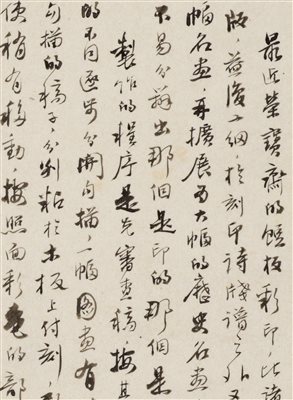 最近榮寶齋的餖板彩印，比諸
版益復工細，於刻印詩牋譜之外又
幅名畫，再擴展為大幅的歷史名畫
不易分辨出那個是印的那個是
製作的程序是先審查稿，按其
的不同逐步分開勾描，一幅圖畫有
勾描的稿子，分別粘於木板上付刻，
使稍有移動，按照面彩色的部